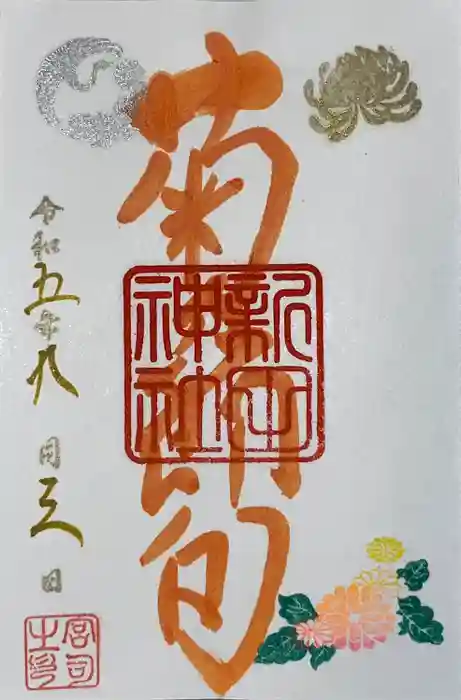 菊節句
新田
神社
令和五年九月三日
宮司
之印